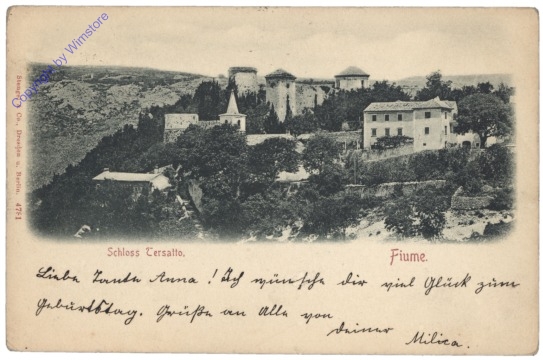 Copyright by Wimstore
Stengel & Co., Dresden u. Berlin. 4781
Schloss Tersatto.
Fiume.
Liebe Tante Anna! Ich wünsche dir viel Glück zum
Geburtstag. Grüße an Alle von
deiner
Milica.